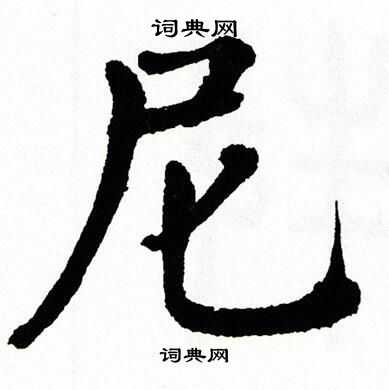 词典网
尼
词典网